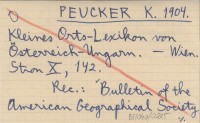 PEUCKER K. 1904.
Kleines Orts-Lexikon von
Österreich-Ungarn. — Wien.
Stron X, 142.
Rec.: "Bulletin of the
American Geographical Society